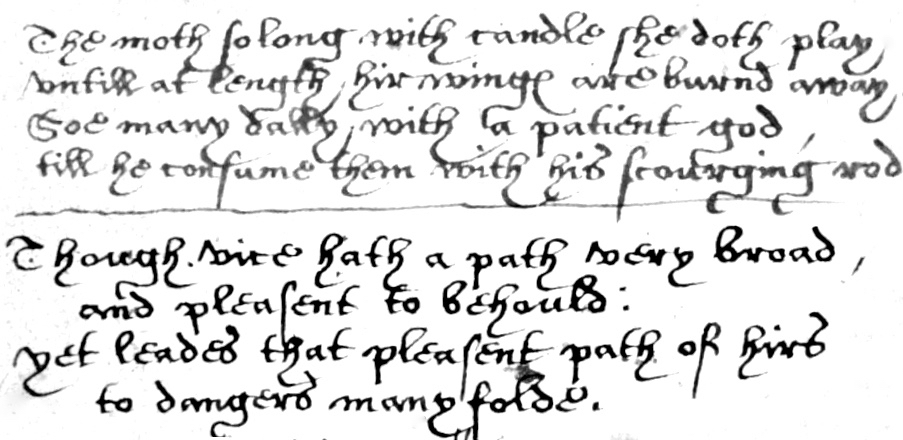 The moth so long with candle she doth play,
vntill at length, hir winges are burnd away,
Soe many dally, with a patient god,
till he consume them with his scourging rod
Though vice hath a path very broad,
and pleasent to behould:
yet leades that pleasent path of hirs
to dangers many folde.